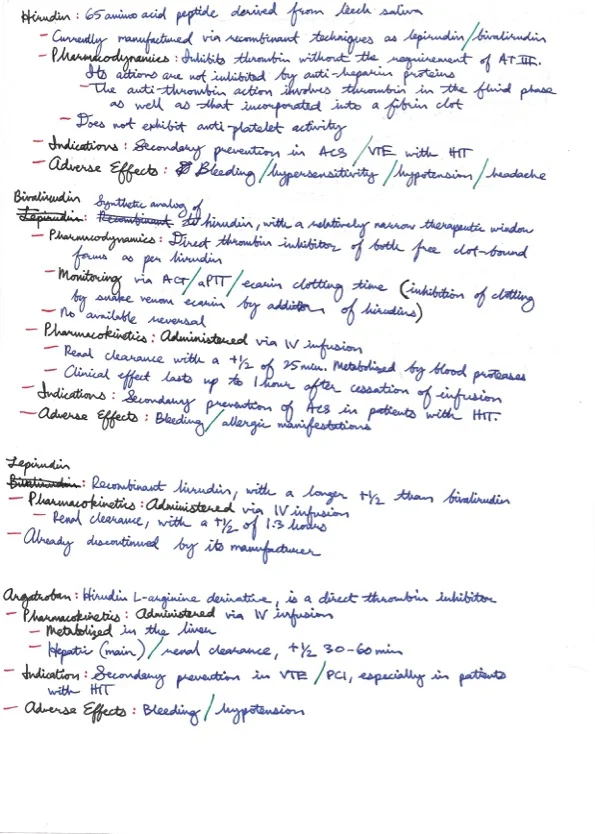 Hirudin : 65 amino acid peptide derived from leech saliva
- Currently manufactured via recombinant techniques as lepirudin/bivalirudin
- Pharmacodynamics : Inhibits thrombin without the requirement of AT III.
Its actions are not inhibited by anti-heparin proteins
- The anti-thrombin action involves thrombin in the fluid phase
as well as that incorporated into a fibrin clot
- Does not exhibit anti-platelet activity
- Indications : Secondary prevention in ACS / VTE with HIT
- Adverse Effects : Bleeding / hypersensitivity / hypotension / headache
Bivalirudin Synthetic analog of
Lepirudin: Recombinant hirudin, with a relatively narrow therapeutic window
- Pharmacodynamics : Direct thrombin inhibitor of both free clot-bound
forms as per hirudin
- Monitoring via ACT / aPTT / ecarin clotting time (inhibition of clotting
by snake venom ecarin by addition of hirudins)
- No available reversal
- Pharmacokinetics : Administered via IV infusion
- Renal clearance with a t1/2 of 25 min. Metabolized by blood proteases
- Clinical effect lasts up to 1 hour after cessation of infusion
- Indications : Secondary prevention of ACS in patients with HIT.
- Adverse Effects : Bleeding / allergic manifestations
Lepirudin
Bivalirudin: Recombinant hirudin, with a longer t1/2 than bivalirudin
- Pharmacokinetics : Administered via IV infusion
- Renal clearance, with a t1/2 of 1.3 hours
- Already discontinued by its manufacturer
Argatroban : Hirudin L-arginine derivative, is a direct thrombin inhibitor
- Pharmacokinetics : Administered via IV infusion
- Metabolized in the liver
- Hepatic (main) / renal clearance, t1/2 30-60 min
- Indication : Secondary prevention in VTE / PCI, especially in patients
with HIT
- Adverse Effects : Bleeding / hypotension